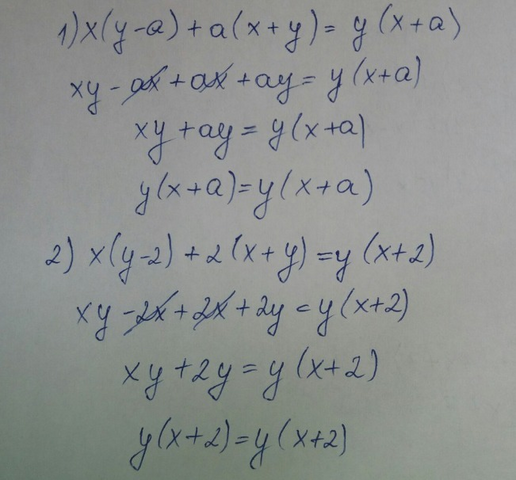 1) x(y-a)+a(x+y)= y(x+a)
xy - ax + ax + ay = y(x+a)
xy + ay = y(x+a)
y(x+a)=y(x+a)
2) x(y-2)+2(x+y)=y(x+2)
xy - 2x + 2x + 2y = y(x+2)
xy + 2y = y(x+2)
y(x+2)=y(x+2)